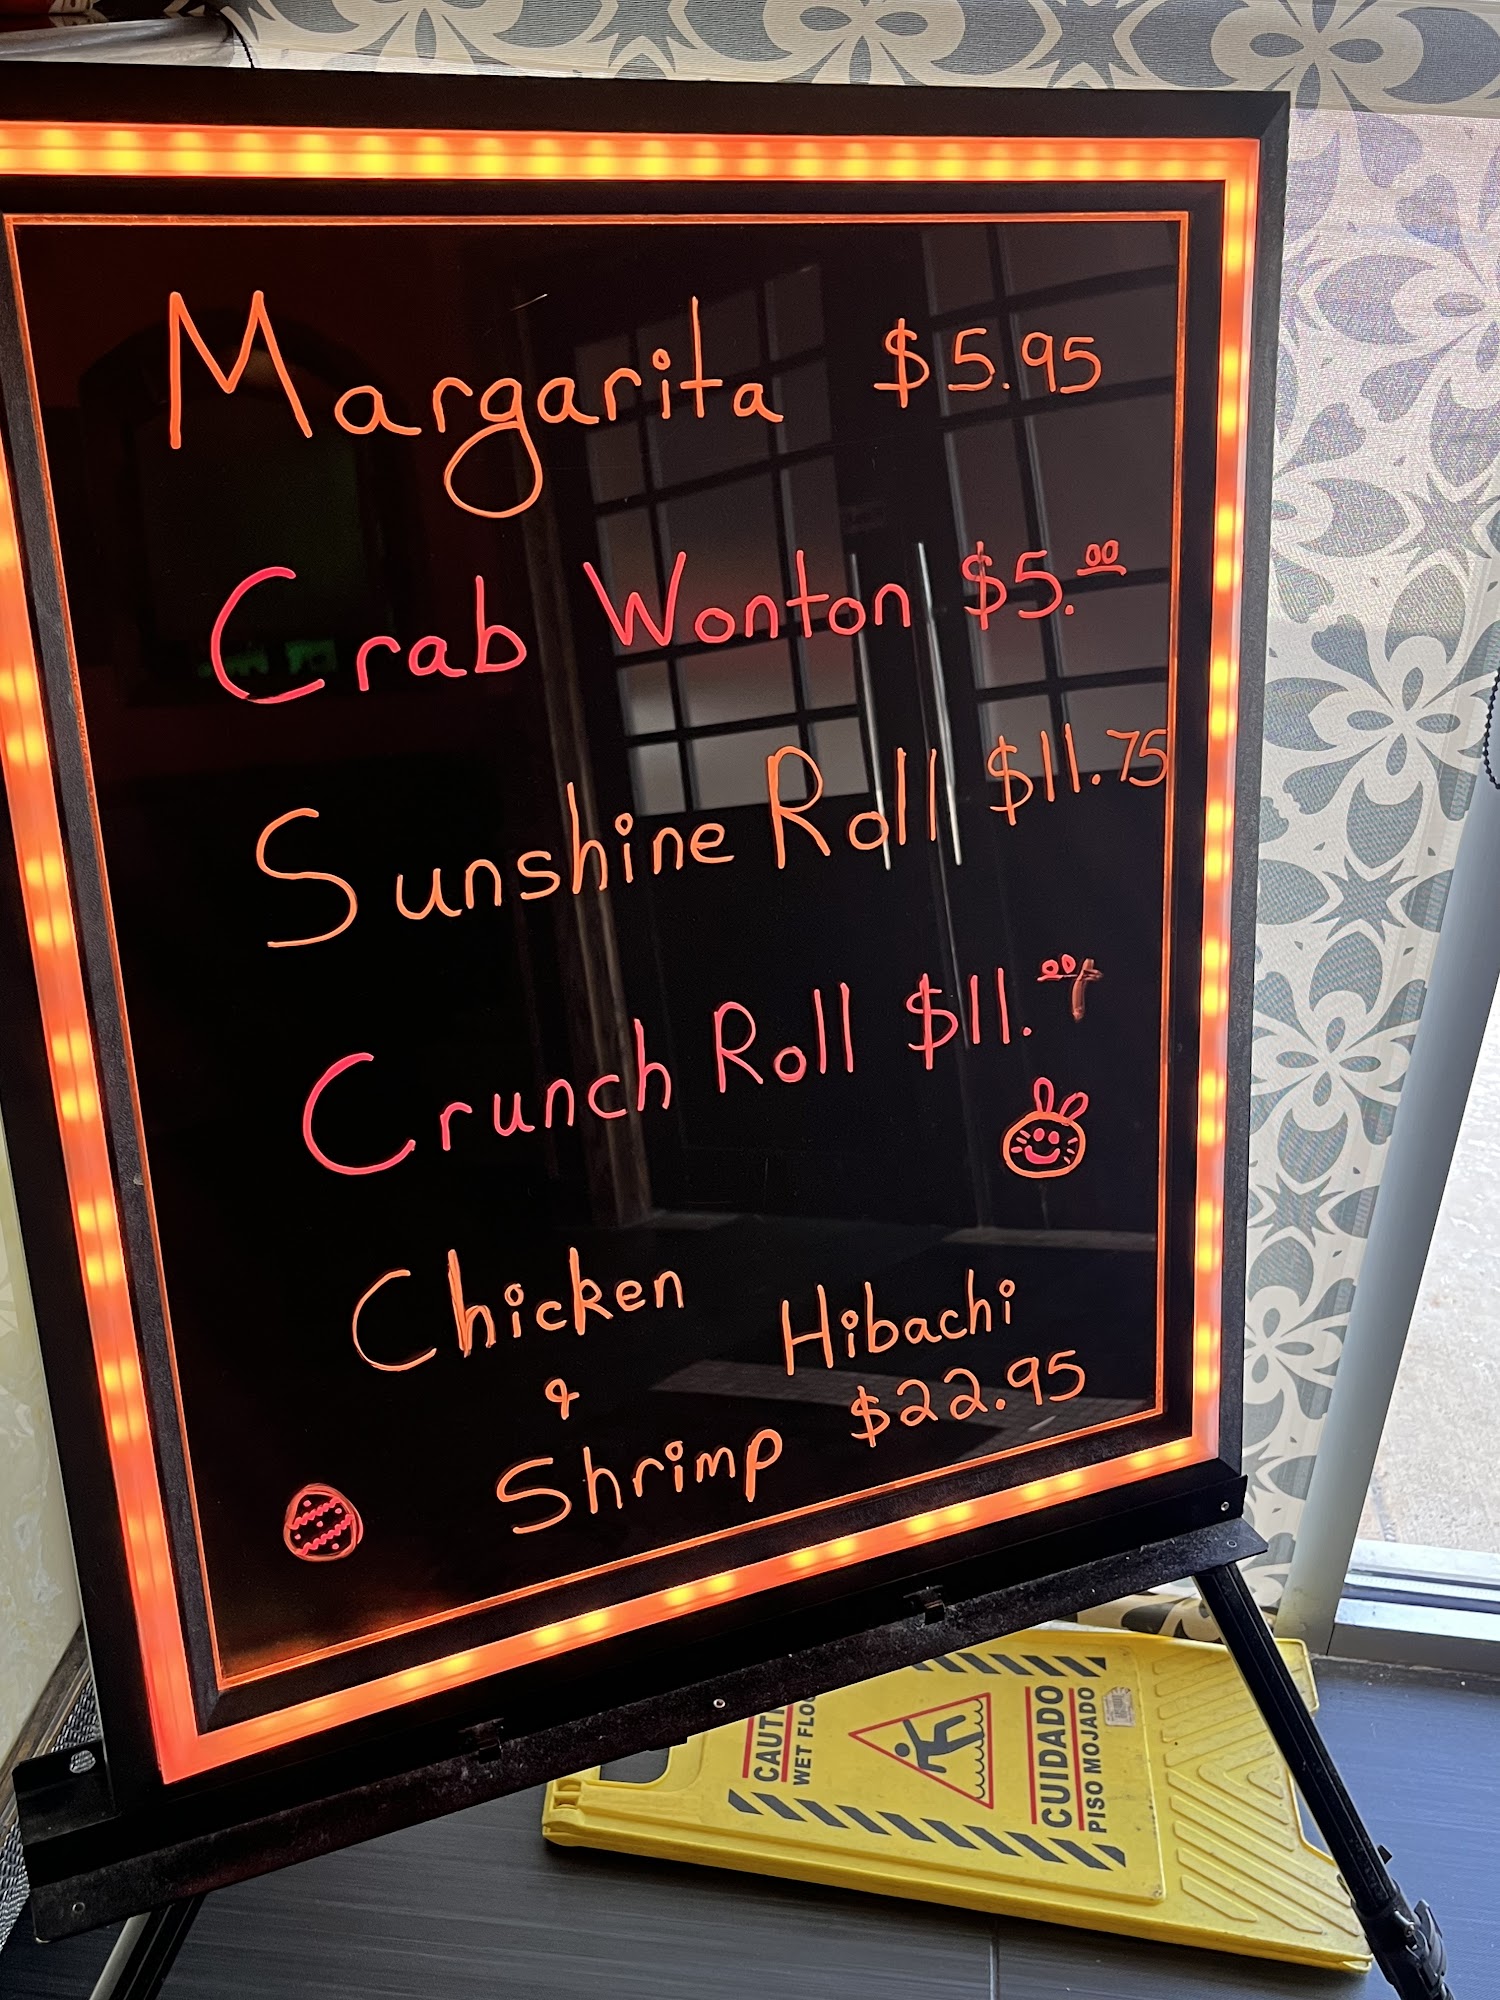 Margarita $5.95
Crab Wonton $5.00
Sunshine Roll $11.75
Crunch Roll $11.00
Chicken
&
Shrimp
Hibachi
$22.95
WET
CUIDADO
PISO MOJADO